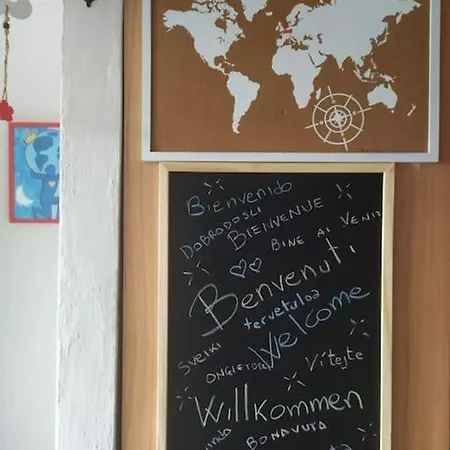 Bienvenido
DOBRODOSLI
BIENVENUE
BINE AI VENIT
Benvenuti
tervetuloa
Welcome
SVEIKI
ONGIETORRI
Vítejte
Willkommen
BONAVUTA